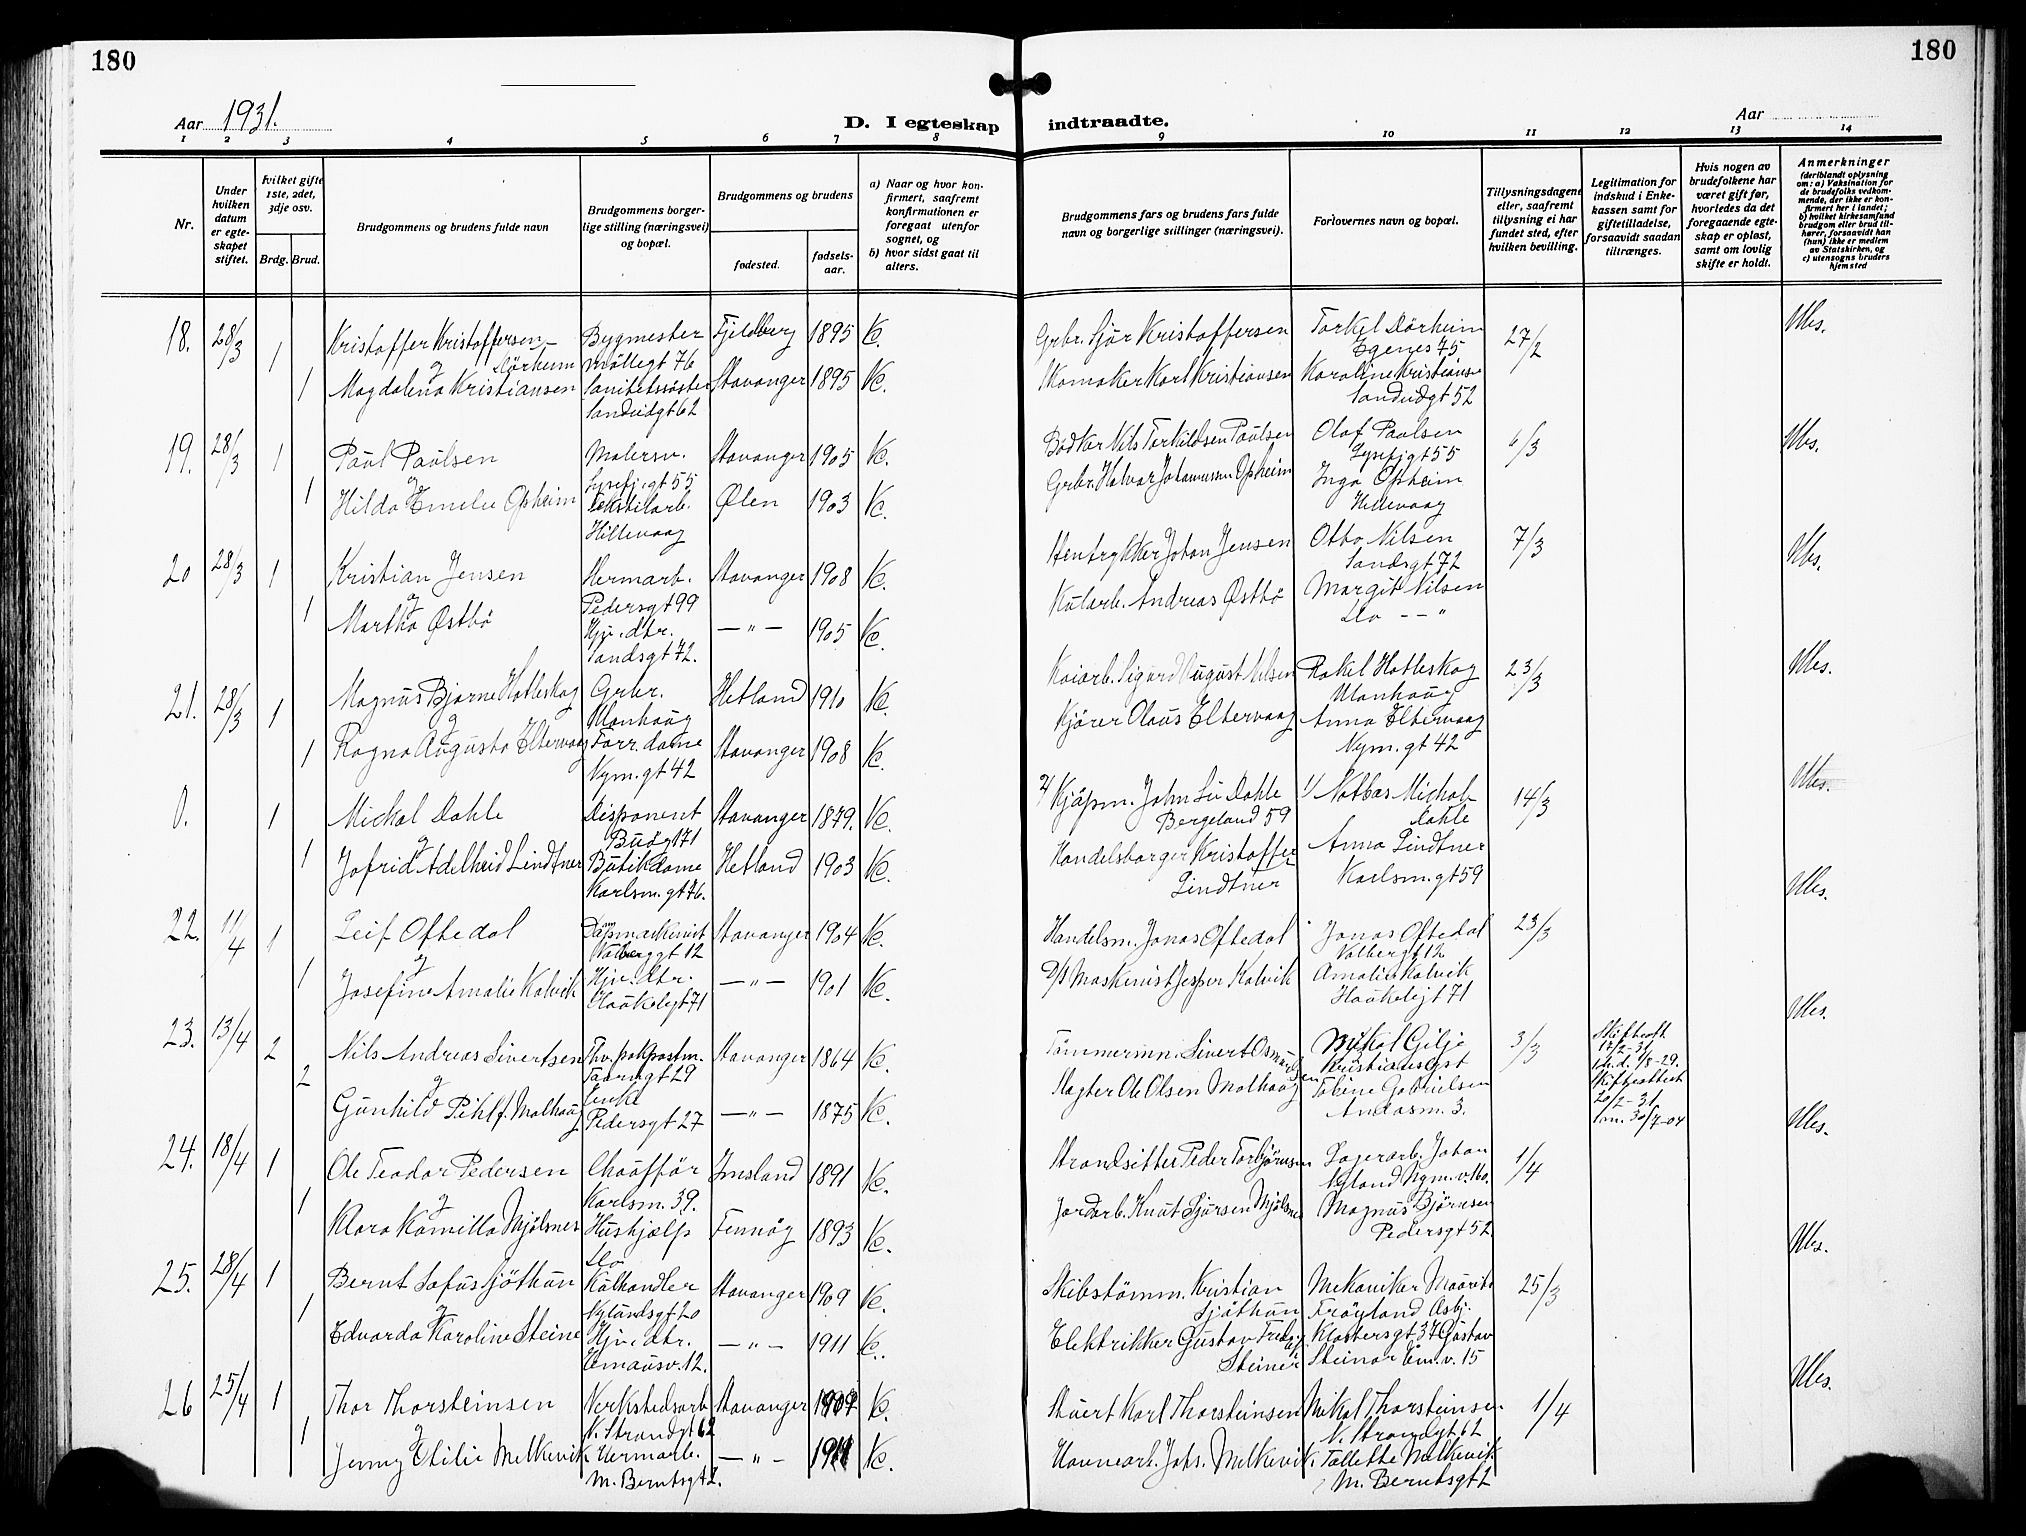 180
180
Aar 1931.
D. I egteskap indtraadte.
Aar
1 2 3 4 5 6 7 8 9 10 11 12 13 14
Nr.
Under hvilken datum er egteskapet stiftet.
Hvilket gifte 1ste, 2det, 3dje osv.
Brdg. Brud.
Brudgommens og brudens fulde navn
Brudgommens borgerlige stilling (næringsvei) og bopæl.
Brudgommens og brudens
fødested.
fødselsaar.
a) Naar og hvor konfirmert, saafremt konfirmationen er foregaaet utenfor sognet, og
b) hvor sidst gaat til alters.
Brudgommens fars og brudens fars fulde navn og borgerlige stillinger (næringsvei).
Forlovernes navn og bopæl.
Tillysningsdagene eller, saafremt tillysning ei har fundet sted, efter hvilken bevilling.
Legitimation for indskud i Enkekassen samt for giftetilladelse, forsaavidt saadan tiltrænges.
Hvis nogen av brudefolkene har været gift før, hvorledes da det foregaaende egteskap er opløst, samt om lovlig skifte er holdt.
Anmerkninger (deriblandt oplysning om: a) Vaksination for de brudefolks vedkommende, der ikke er konfirmert her i landet; b) hvilket kirkesamfund brudgom eller brud tilhører, forsaavidt han (hun) ikke er medlem av Statskirken, og c) utensogns bruders hjemsted
18. 28/3 1 Kristoffer Kristoffersen Dörheim Bygmester Møllegt 76 Fjeldberg 1895 Grbr. Sjur Kristoffersen Torkel Dörheim Egenes 75 27/2
og
1 Magdalena Kristiansen Sanitetssøster Sandvigt 62 Stavanger 1895 Skomaker Karl Kristiansen Karoline Kristianse Sandvigt 52
19. 28/3 1 Paul Paulsen Malersv. Lysefj.gt 55 Stavanger 1905 Bødker Nils Torkildsen Paulsen Olaf Paulsen Lysefjgt 55 6/3
og
1 Hilda Emelie Opheim Tekstilarb. Hillevaag Ølen 1903 Grbr. Halvar Johannessen Opheim Inga Opheim Hillevaag
20 28/3 1 Kristian Jensen Hermarb. Pedersgt 99 Stavanger 1908 Stentrykker Johan Jensen Otto Nilsen Sandsgt 72 7/3
og
1 Martha Østbö Hjv. dtr. Sandsgt 72. — " — 1905 Kularb. Andreas Østbö Margit Nilsen Do - - "
21. 28/3 1 Magnus Bjarne Hatleskog Grbr. Ulanhaug Hetland 1910 Kaiarb. Sigurd August Nilsen Rakel Hatleskog Ulanhaug 23/3
og
1 Ragna Augusta Eltervaag Forr. dame Nym. gt 42 Stavanger 1908 Kjörer Olaus Eltervaag Anna Eltervaag Nym. gt 42
0. 1 Mickal Dahle Disponent Buøgt 71 Stavanger 1879. Kjöpm. John Lie Dahle Bergeland 59 Mickal Dahle 14/3
og
1 Jofrid Adelheid Lindtner Butikdame Karlsm. gt 76. Hetland 1903 Handelsborger Kristoffer Lindtner Anna Lindtner Karlsm. gt 59
22. 11/4 1 Leif Oftedal Valberggt 12 Stavanger 1904 Handelsm. Jonas Oftedal Jonas Oftedal Valbergt 12 23/3
og
1 Josefine Amalie Kalvik Hjv. dtr. Haukeligt 71 — " — 1901 D/s Maskinist Jesper Kalvik Amalie Kalvik Haukeligt 71
23. 13/4 2 Nils Andreas Sivertsen Taarngt 29 Stavanger 1864 Tömmermn. Sivert Osmundsen Mikal Gilje Kristiansgst 3/3 Skifteatt 17/2-31
og
2 Gunhild Pihl f. Malhaug Enke Pedersgt 27 — " — 1875 Slagter Ole Olsen Malhaug Tobine Gabrielsen Andasm. 3. Skifteattest 20/2-31 30/7-04
24. 18/4 1 Ole Teodor Pedersen Chauffør Karlsm. 39. Imsland 1891 Strandsitter Peder Torbjörnsen Lagerarb. Johan Nyland Nym.v. 160. 1/4
og
1 Klara Kamilla Mjölsnes Hushjælp Do Finnöy 1893 Jordarb. Knut Sjursen Mjölsnes Magnus Björnsen Pedersgt 52.
25. 28/4 1 Bernt Sofus Sjöthun Kulhandler Nylandsgt 20 Stavanger 1909 Skibstömm. Kristian Sjöthun Mekaniker Mauritz Fröyland Asbj. Klostersgt 37 25/3
og
1 Edvarda Karoline Steine Hjv. dtr. Emausv. 12. — " — 1911 Elektrikker Gustav Steiner Gustav Steiner Em. v. 15
26 25/4 1 Thor Thorsteinsen Verkstedsarb N. Strandgt 62 Stavanger Stuert Karl Thorsteinsen Mikal Thorsteinsen N. Strandgt 62 1/4
og
1 Jenny Otilie Melkevik Hermarb. M. Berntsgt 2. — " — Havnearb. Johs. Melkevik. Tallette Melkevik M. Berntsgt 2